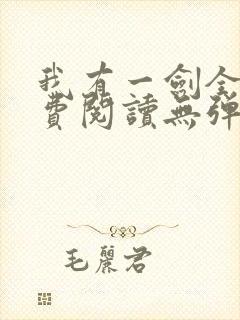 我有一劍全
費閱讀無彈
毛麗君